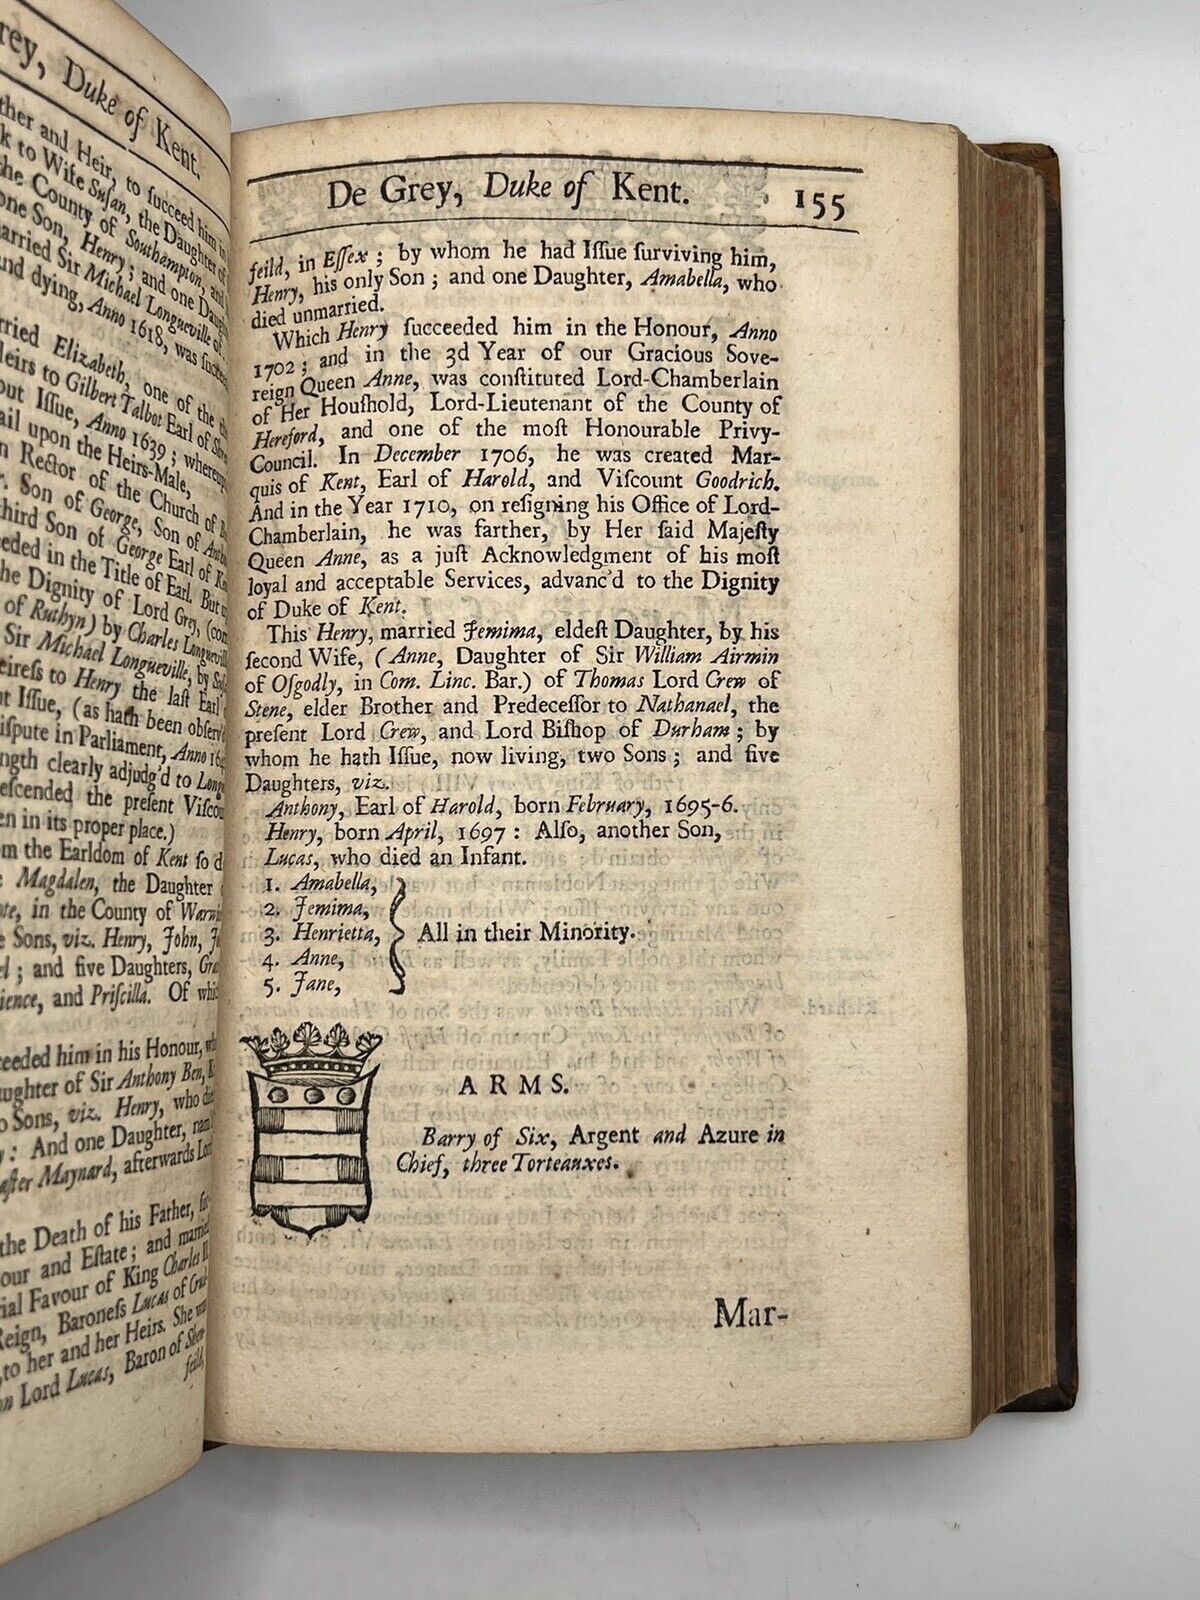 rey, Duke of Kent.
ther and Heir, to ſucceed him in
k to Wife Suſan, the Daughter of
the County of Southampton, and
one Son, Henry; and one Daugh
arried Sir Michael Longueville of
nd dying, Anno 1618, was ſucceed
rried Elizabeth, one of the
Heirs to Gilbert Talbot Earl of Shre
out Iſſue, Anno 1639; whereupo
ail upon the Heirs-Male,
n Rector of the Church of
r. Son of George, Son of Antho
third Son of George Earl of Ken
eeded in the Title of Earl. But
he Dignity of Lord Grey, (com
of Ruthyn) by Charles Longuevill
Sir Michael Longueville, by Suſa
eireſs to Henry the laſt Earl
t Iſſue, (as hath been obſerv
iſpute in Parliament, Anno 164
ngth clearly adjudg'd to Longu
eſcended the preſent Viſcou
en in its proper place.)
om the Earldom of Kent ſo d
e Magdalen, the Daughter
ote, in the County of Warwi
e Sons, viz. Henry, John, J
el; and five Daughters, Gra
ience, and Priſcilla. Of whic
ceeded him in his Honour, wh
aughter of Sir Anthony Ben, K
o Sons, viz. Henry, who died
y: And one Daughter, nam'
aſter Maynard, afterwards Lord
the Death of his Father, ſuc-
our and Eſtate; and married
rial Favour of King Charles II.
Reign, Baroneſs Lucas of Crud-
, to her and her Heirs. She was
on Lord Lucas, Baron of Shen-
feild,
De Grey, Duke of Kent. 155
feild, in Eſſex; by whom he had Iſſue ſurviving him,
Henry, his only Son; and one Daughter, Amabella, who
died unmarried.
Which Henry ſucceeded him in the Honour, Anno
1702; and in the 3d Year of our Gracious Sove-
reign Queen Anne, was conſtituted Lord-Chamberlain
of Her Houſhold, Lord-Lieutenant of the County of
Hereford, and one of the moſt Honourable Privy-
Council. In December 1706, he was created Mar-
quis of Kent, Earl of Harold, and Viſcount Goodrich.
And in the Year 1710, on reſigning his Office of Lord-
Chamberlain, he was farther, by Her ſaid Majeſty
Queen Anne, as a juſt Acknowledgment of his moſt
loyal and acceptable Services, advanc'd to the Dignity
of Duke of Kent.
This Henry, married Jemima, eldeſt Daughter, by his
ſecond Wife, (Anne, Daughter of Sir William Airmin
of Oſgodly, in Com. Linc. Bar.) of Thomas Lord Crew of
Stene, elder Brother and Predeceſſor to Nathanael, the
preſent Lord Crew, and Lord Biſhop of Durham; by
whom he hath Iſſue, now living, two Sons; and five
Daughters, viz.
Anthony, Earl of Harold, born February, 1695-6.
Henry, born April, 1697: Alſo, another Son,
Lucas, who died an Infant.
1. Amabella,
2. Jemima,
3. Henrietta, All in their Minority.
4. Anne,
5. Jane,
ARMS.
Barry of Six, Argent and Azure in
Chief, three Torteauxes.
Mar-